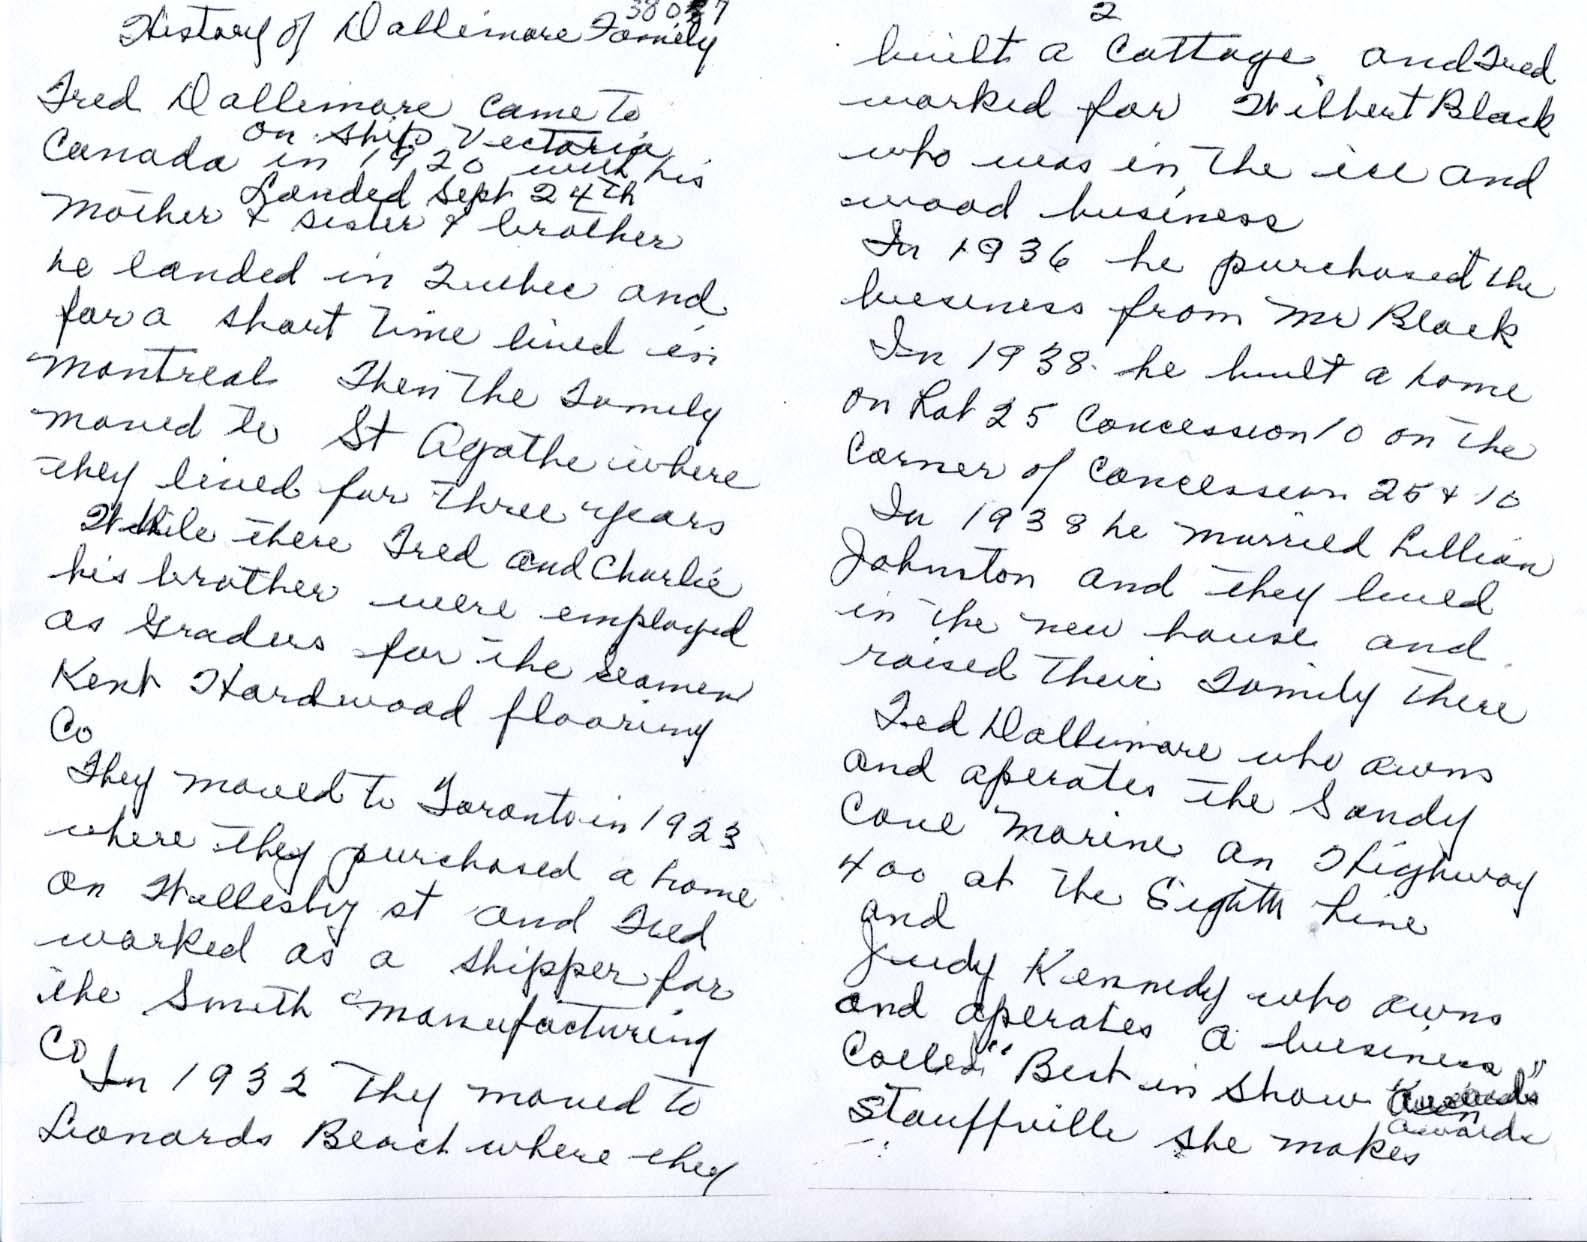 History of Dallimore Family
Fred Dallimore came to
on ship Victoria
Canada in 1920 with his
Landed Sept 24th
Mother & sister & brother
he landed in Quebec and
for a short time lived in
Montreal Then the Family
moved to St Agathe where
they lived for three years
While there Fred and Charlie
his brother were employed
as Graders for the Seamen
Kent Hardwood flooring
Co
They moved to Toronto in 1923
where they purchased a home
on Wellesley st and Fred
worked as a shipper for
the Smith Manufacturing
Co
In 1932 They moved to
Leonards Beach where they
2
built a Cottage and Fred
worked for Wilbert Black
who was in the ice and
wood business
In 1936 he purchased the
business from Mr Black
In 1938 he built a home
on Lot 25 Concession 10 on the
Corner of Concession 25 & 10
In 1938 he married Lillian
Johnston and they lived
in the new house and
raised their Family there
Ted Dallimore who owns
and operates the Sandy
Cove Marine on Highway
400 at the Eighth Line
and
Judy Kennedy who owns
and operates a business
Called "Best in Show"
awards
Stouffville she makes